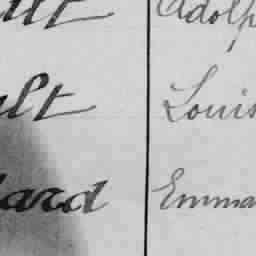 ult Adolp
ult Louis
lard Emma